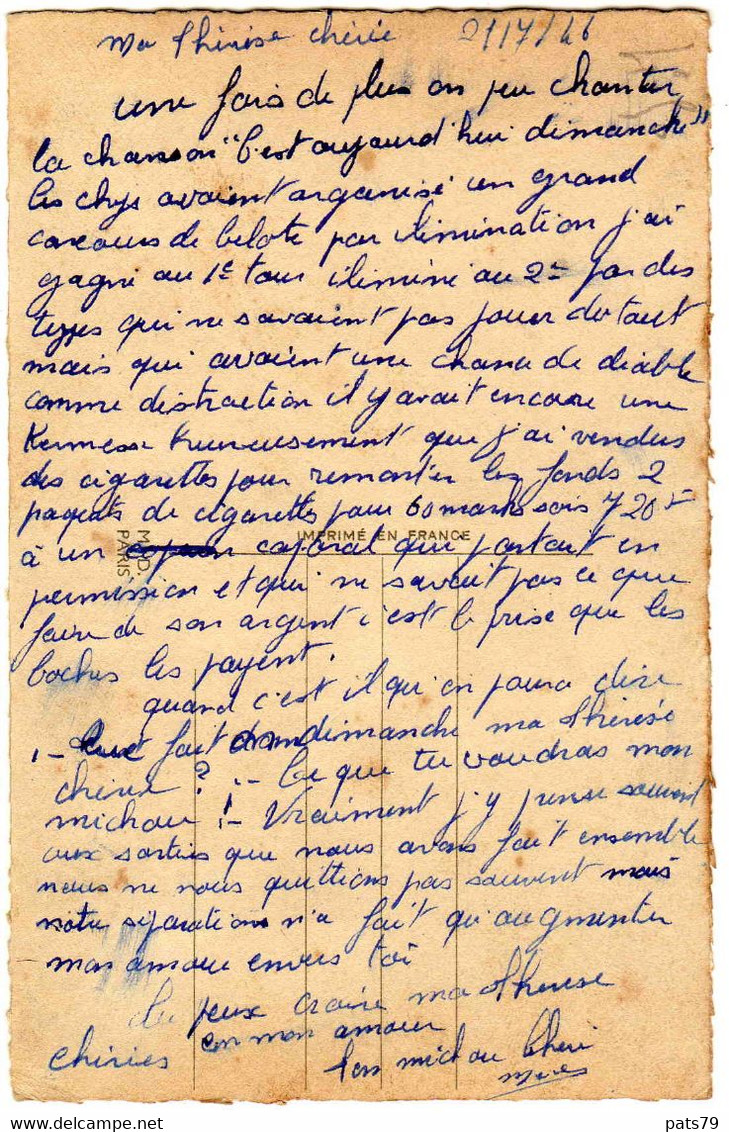 ma Thérèse chérie 21/7/46
une fois de plus on peu chanter
la chanson "C'est aujourd'hui dimanche"
les avaient organisé un grand
concours de belote par élimination j'ai
gagné au 1e tour éliminé au 2e par des
types qui ne savaient pas jouer du tout
mais qui avaient une chance de diable
comme distraction il y avait encore une
Kermesse heureusement que j'ai vendus
des cigarettes pour remonter les fonds 2
paquets de cigarettes pour 60 marks sois 720 F
à un caporal qui partait en
IMPRIMÉ EN FRANCE
PARIS
permission et qui ne savait pas ce que
faire de son argent c'est le prise que les
boches les payent.
quand c'est il qu'on poura dire
fait dimanche ma Thérèse
chérie ? - Ce que tu voudras mon
michou ! - Vraiment j'y pense souvent
aux sorties que nous avons fait ensemble
nous ne nous quittions pas souvent mais
notre séparation n'a fait qu'augmenter
mon amour envers toi
Tu peux croire ma Therese
chéries en mon amour
Ton michou Cheri
pats79